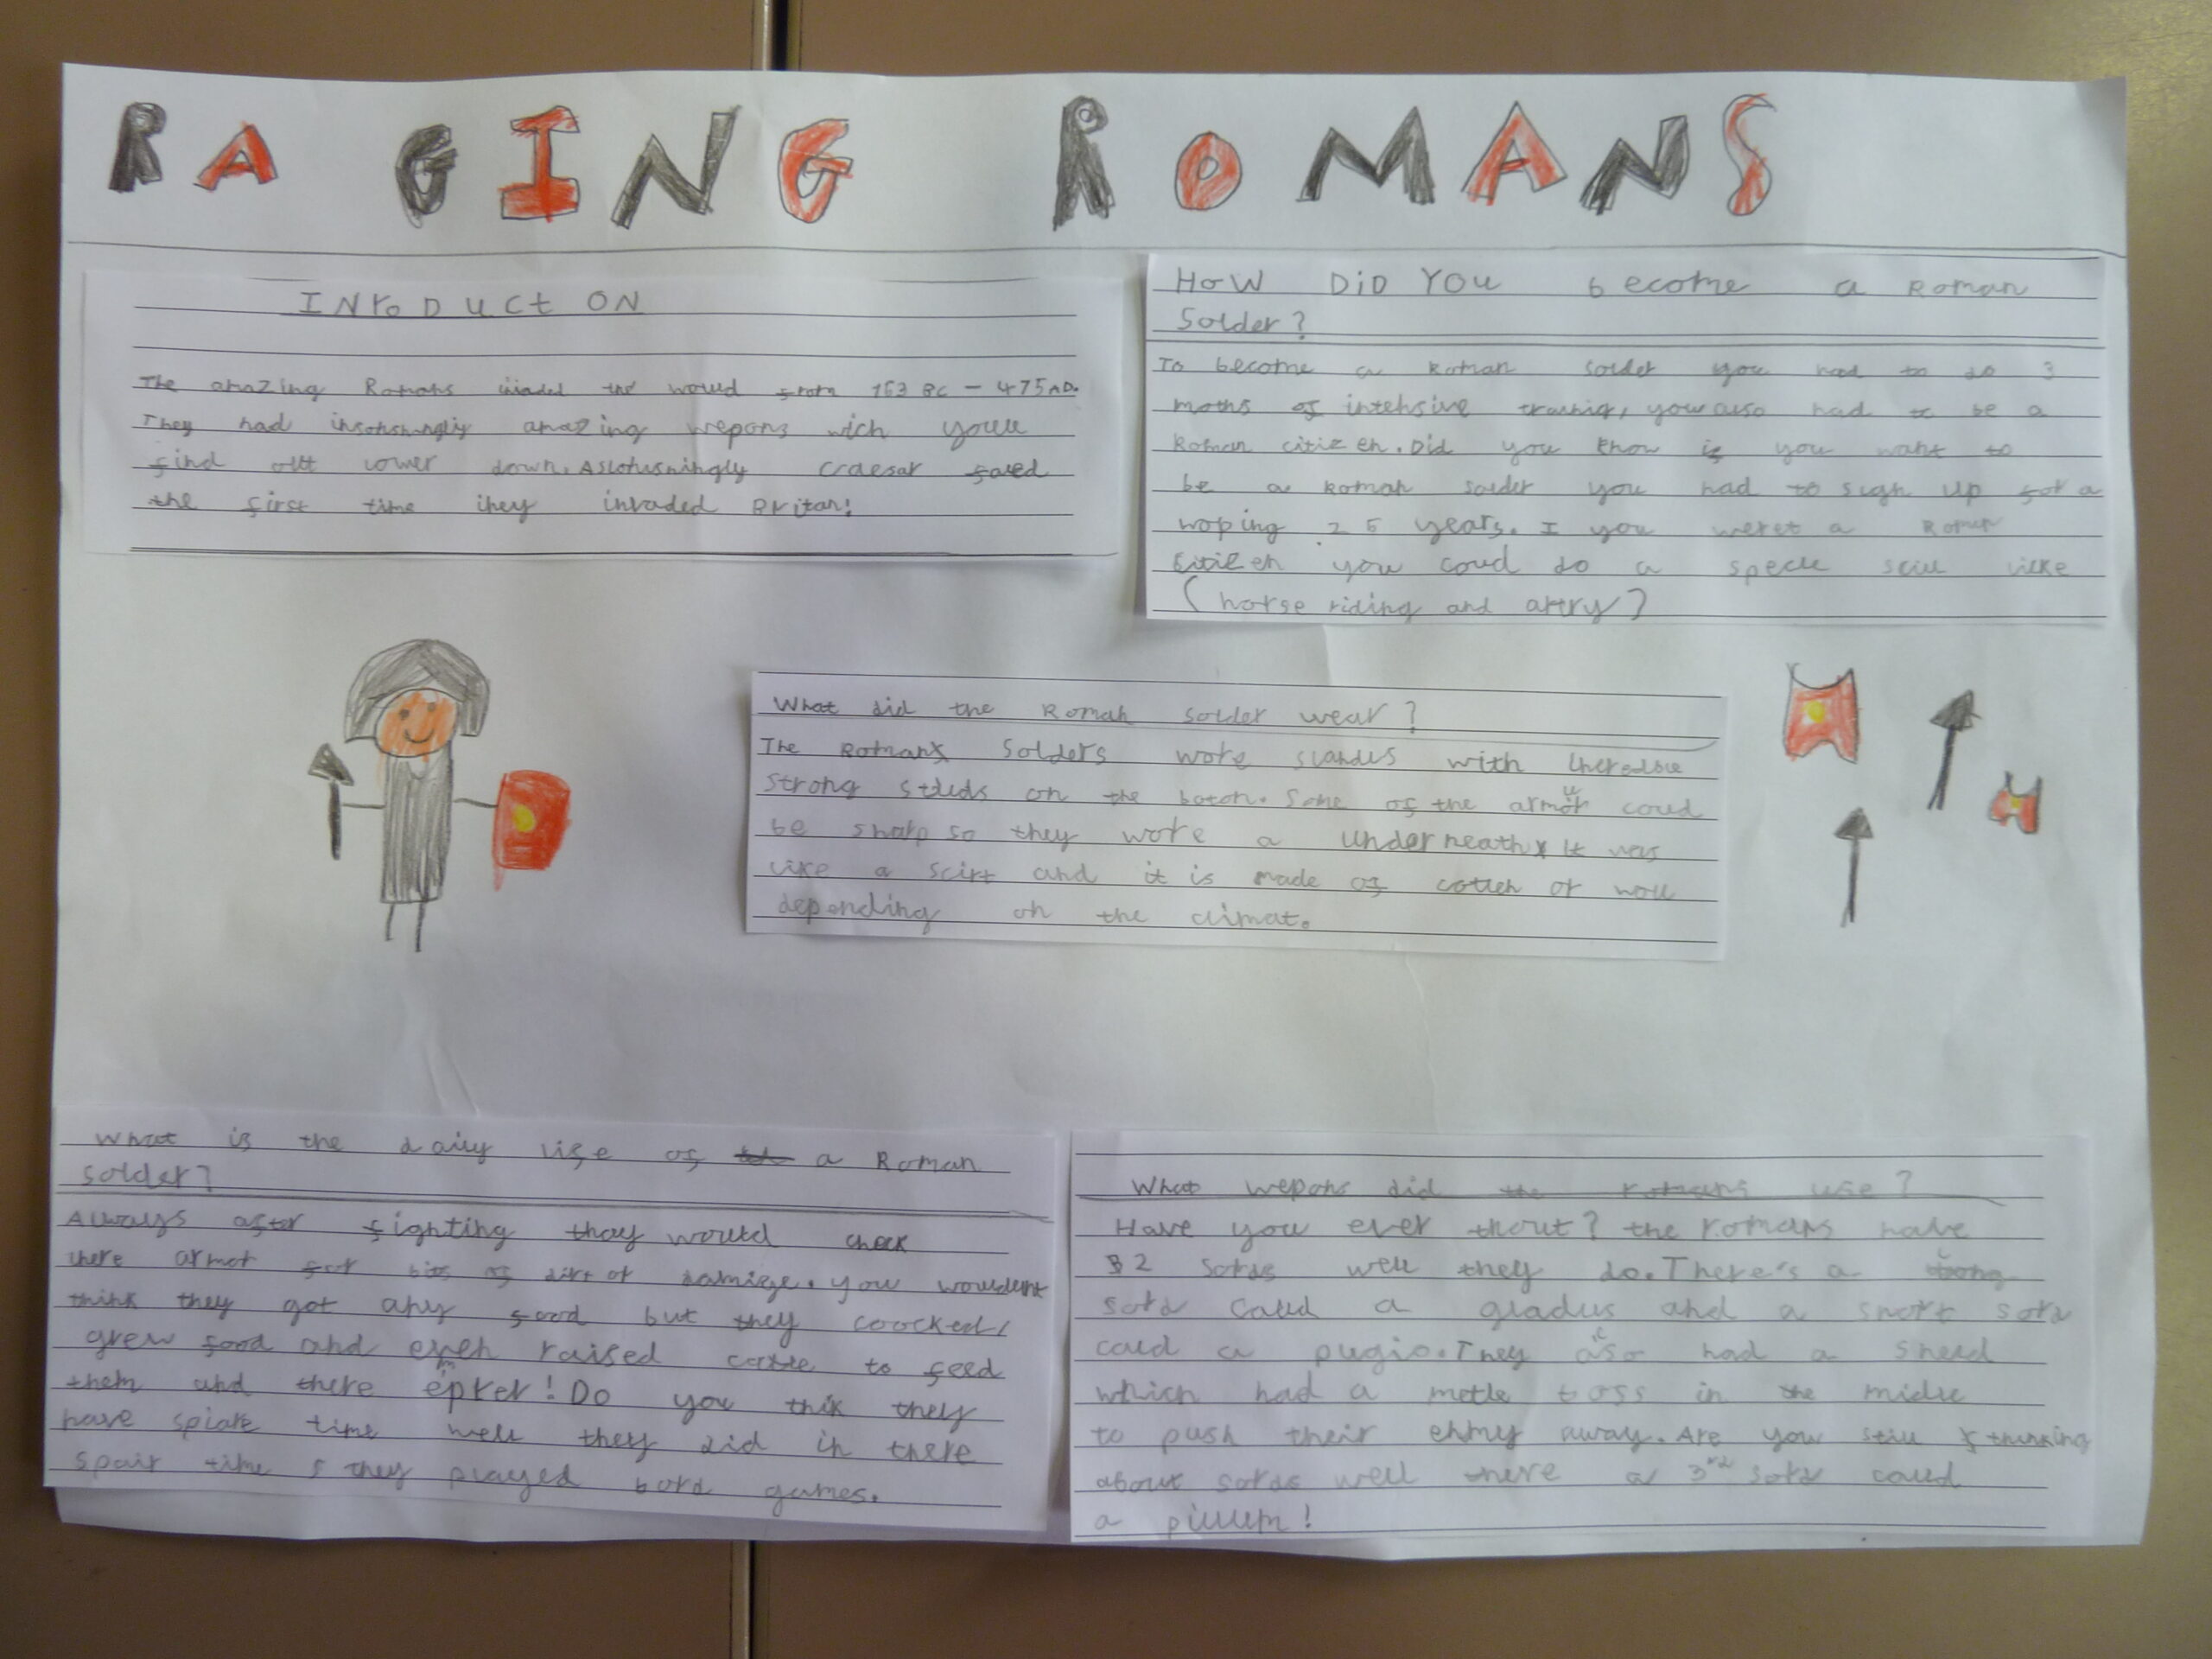 RAGING ROMANS
INtroDUCtON
The amazing Romans invaded the would from 753 BC - 475AD.
They had amazing wepons wich youll
find out lower down. Caesar faled
the first time they invaded Britan!
HOW DiD YOU become a Roman
Solder?
To become a Roman solder you had to do 3
moths of intensive training, you also had to be a
Roman citizen. Did you know if you want to
be a Roman solder you had to sign up for a
woping 25 years. I you weret a Roman
citizen you coud do a specll scill like
(horse riding and artry)
What did the Roman solder wear?
The Romans Solders wore slandls with
strong studs on the botom. Some of the armour coud
be sharp so they wore a underneath It was
like a scirt and it is made of cotten or woll
depending on the climat.
What is the daily life of a Roman
solder?
Always after fighting thay would check
there armor for bits of dirt or damige. you wouldent
think they got any food but they coocked,
grew food and even raised cattle to feed
them and there empier! Do you thik they
have spiare time well they did in there
spair time they played bord games.
What wepons did the romans use?
Have you ever thout? the romans have
2 sords well they do. There's a long
sord calld a gladius and a short sord
calld a pugio. They also had a sheild
which had a metle boss in the midle
to push their enmey away. Are you still thinking
about sords well there a 3rd sord calld
a pillum!